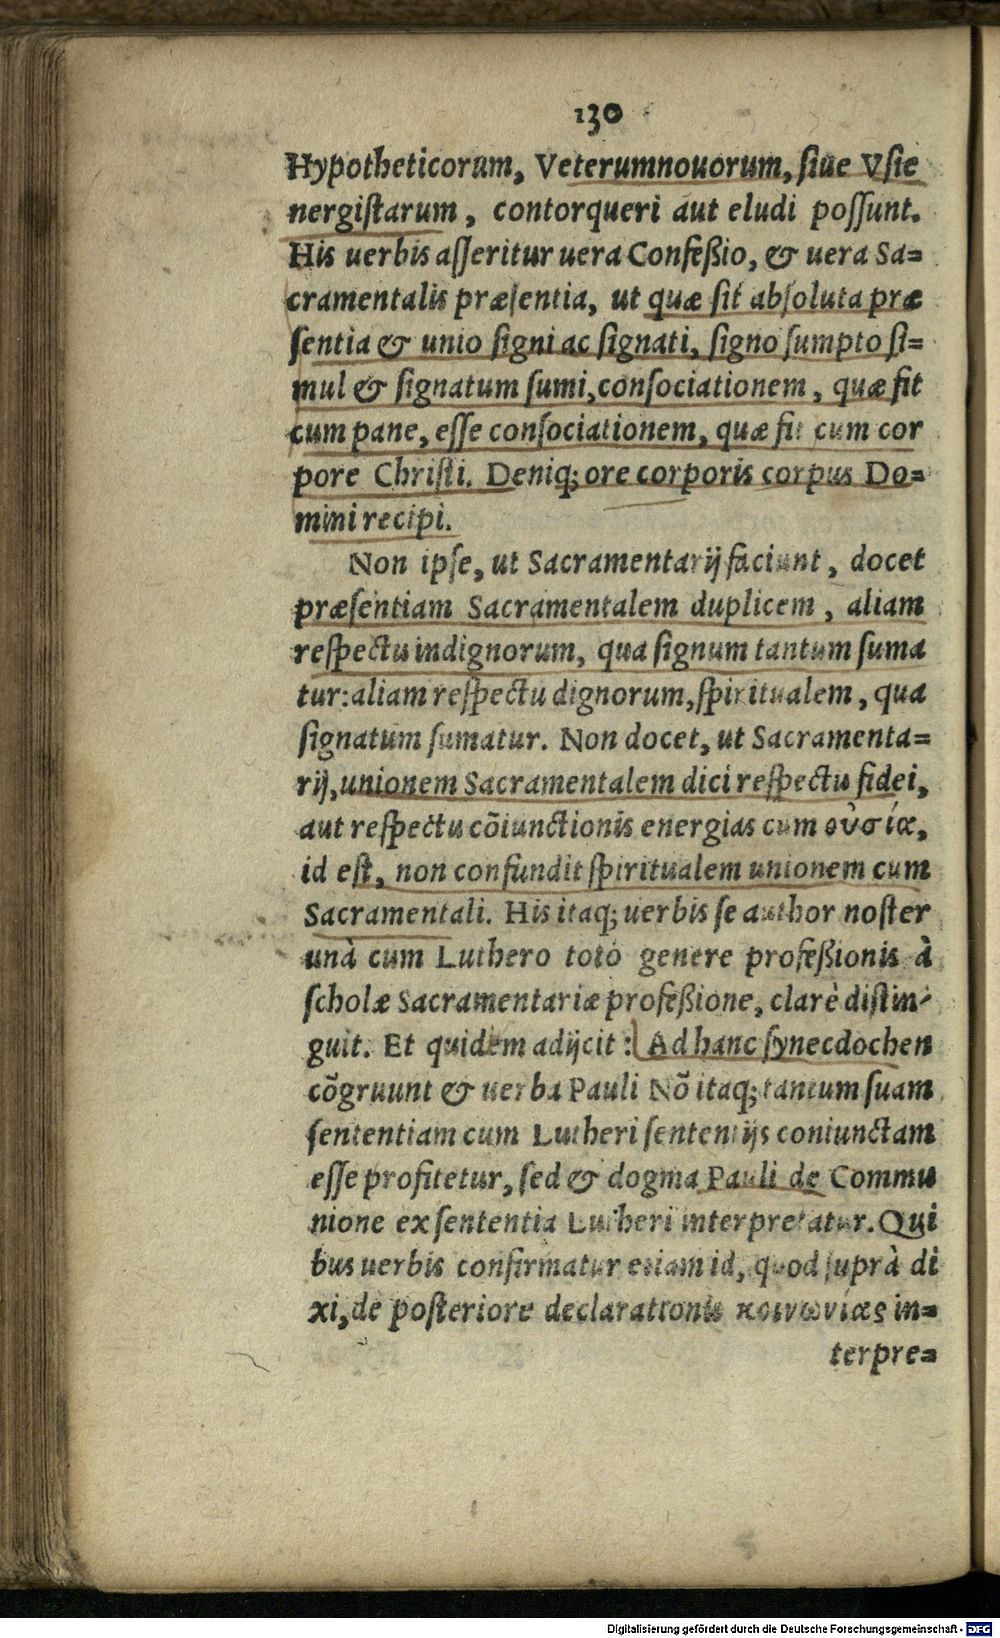 130
Hypotheticorum, Veterumnouorum, ſiue Vſie
nergiſtarum, contorqueri aut eludi poſſunt.
His uerbis aſſeritur uera Confeßio, & uera Sa=
cramentalis præſentia, ut quæ ſit abſoluta præ
ſentia & unio ſigni ac ſignati, ſigno ſumpto ſi=
mul & ſignatum ſumi, conſociationem, quæ fit
cum pane, eſſe conſociationem, quæ fit cum cor
pore Chriſti. Deniq; ore corporis corpus Do=
mini recipi.
Non ipſe, ut Sacramentarij faciunt, docet
præſentiam Sacramentalem duplicem, aliam
reſpectu indignorum, qua ſignum tantum ſuma
tur: aliam reſpectu dignorum, ſpiritualem, qua
ſignatum ſumatur. Non docet, ut Sacramenta=
rij, unionem Sacramentalem dici reſpectu fidei,
aut reſpectu cõiunctionis energias cum οὐσία,
id eſt, non confundit ſpiritualem unionem cum
Sacramentali. His itaq; uerbis ſe author noſter
unà cum Luthero toto genere profeßionis à
ſcholæ Sacramentariæ profeßione, clarè diſtin-
guit. Et quidem adijcit: Ad hanc ſynecdochen
cõgruunt & uerba Pauli Nõ itaq; tantum ſuam
ſententiam cum Lutheri ſententijs coniunctam
eſſe profitetur, ſed & dogma Pauli de Commu
nione ex ſententia Lutheri interpretatur. Qui
bus uerbis confirmatur etiam id, quod ſuprà di
xi, de poſteriore declarationis κοινωνίας in=
terpre=
Digitalisierung gefördert durch die Deutsche Forschungsgemeinschaft - DFG